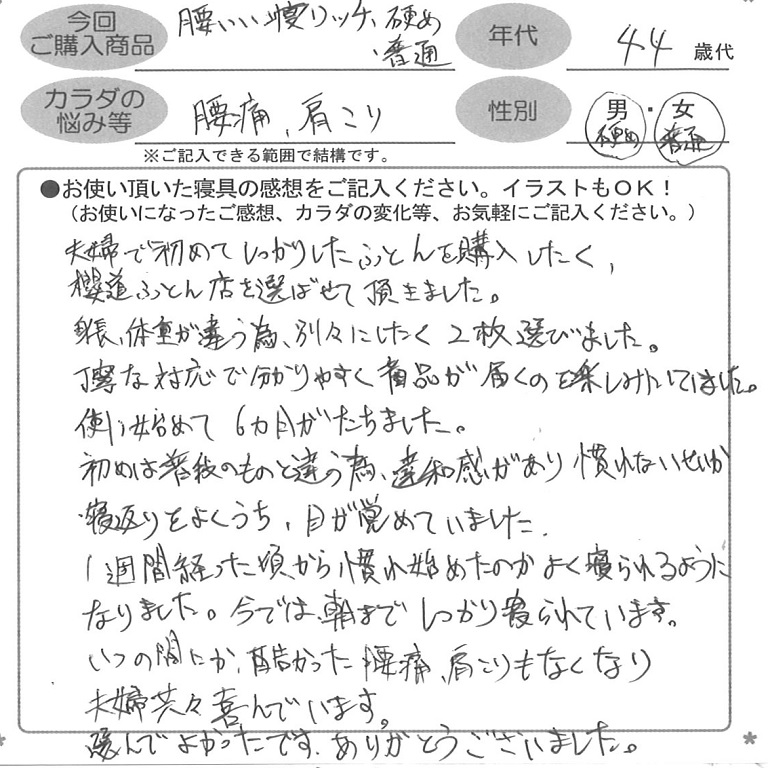 今回
ご購入商品
腰いい寝リッチ、硬め
・普通
年代
44 歳代
カラダの
悩み等
腰痛、肩こり
性別
男・女
硬め 普通
※ご記入できる範囲で結構です。
●お使い頂いた寝具の感想をご記入ください。イラストもOK！
（お使いになったご感想、カラダの変化等、お気軽にご記入ください。）
夫婦で初めてしっかりしたふとんを購入したく、
櫻道ふとん店を選ばせて頂きました。
身長、体重が違う為、別々にしたく2枚選びました。
丁寧な対応で分かりやすく商品が届くのを楽しみにしてました。
使い始めて6カ月がたちました。
初めは普段のものと違う為、違和感があり慣れないせいか
寝返りをよくうち、目が覚めていました。
1週間経った頃から慣れ始めたのかよく寝られるように
なりました。今では、朝までしっかり寝られています。
いつの間にか、酷かった腰痛、肩こりもなくなり
夫婦共々喜んでいます。
選んでよかったです。ありがとうございました。